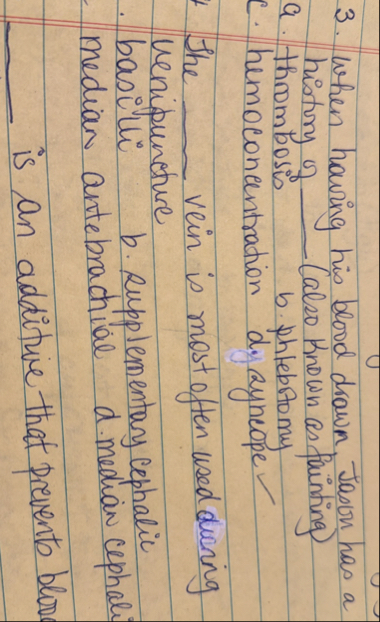 3. When having his blood drawn, Jason has a
history of ____ (also known as fainting)
a. thrombosis b. phlebotomy
c. hemoconcentration d. syncope ✓
The ____ vein is most often used during
venipuncture
basilli b. supplementary cephalic
median antebrachial d. median cephali
____ is an additive that prevents bloo